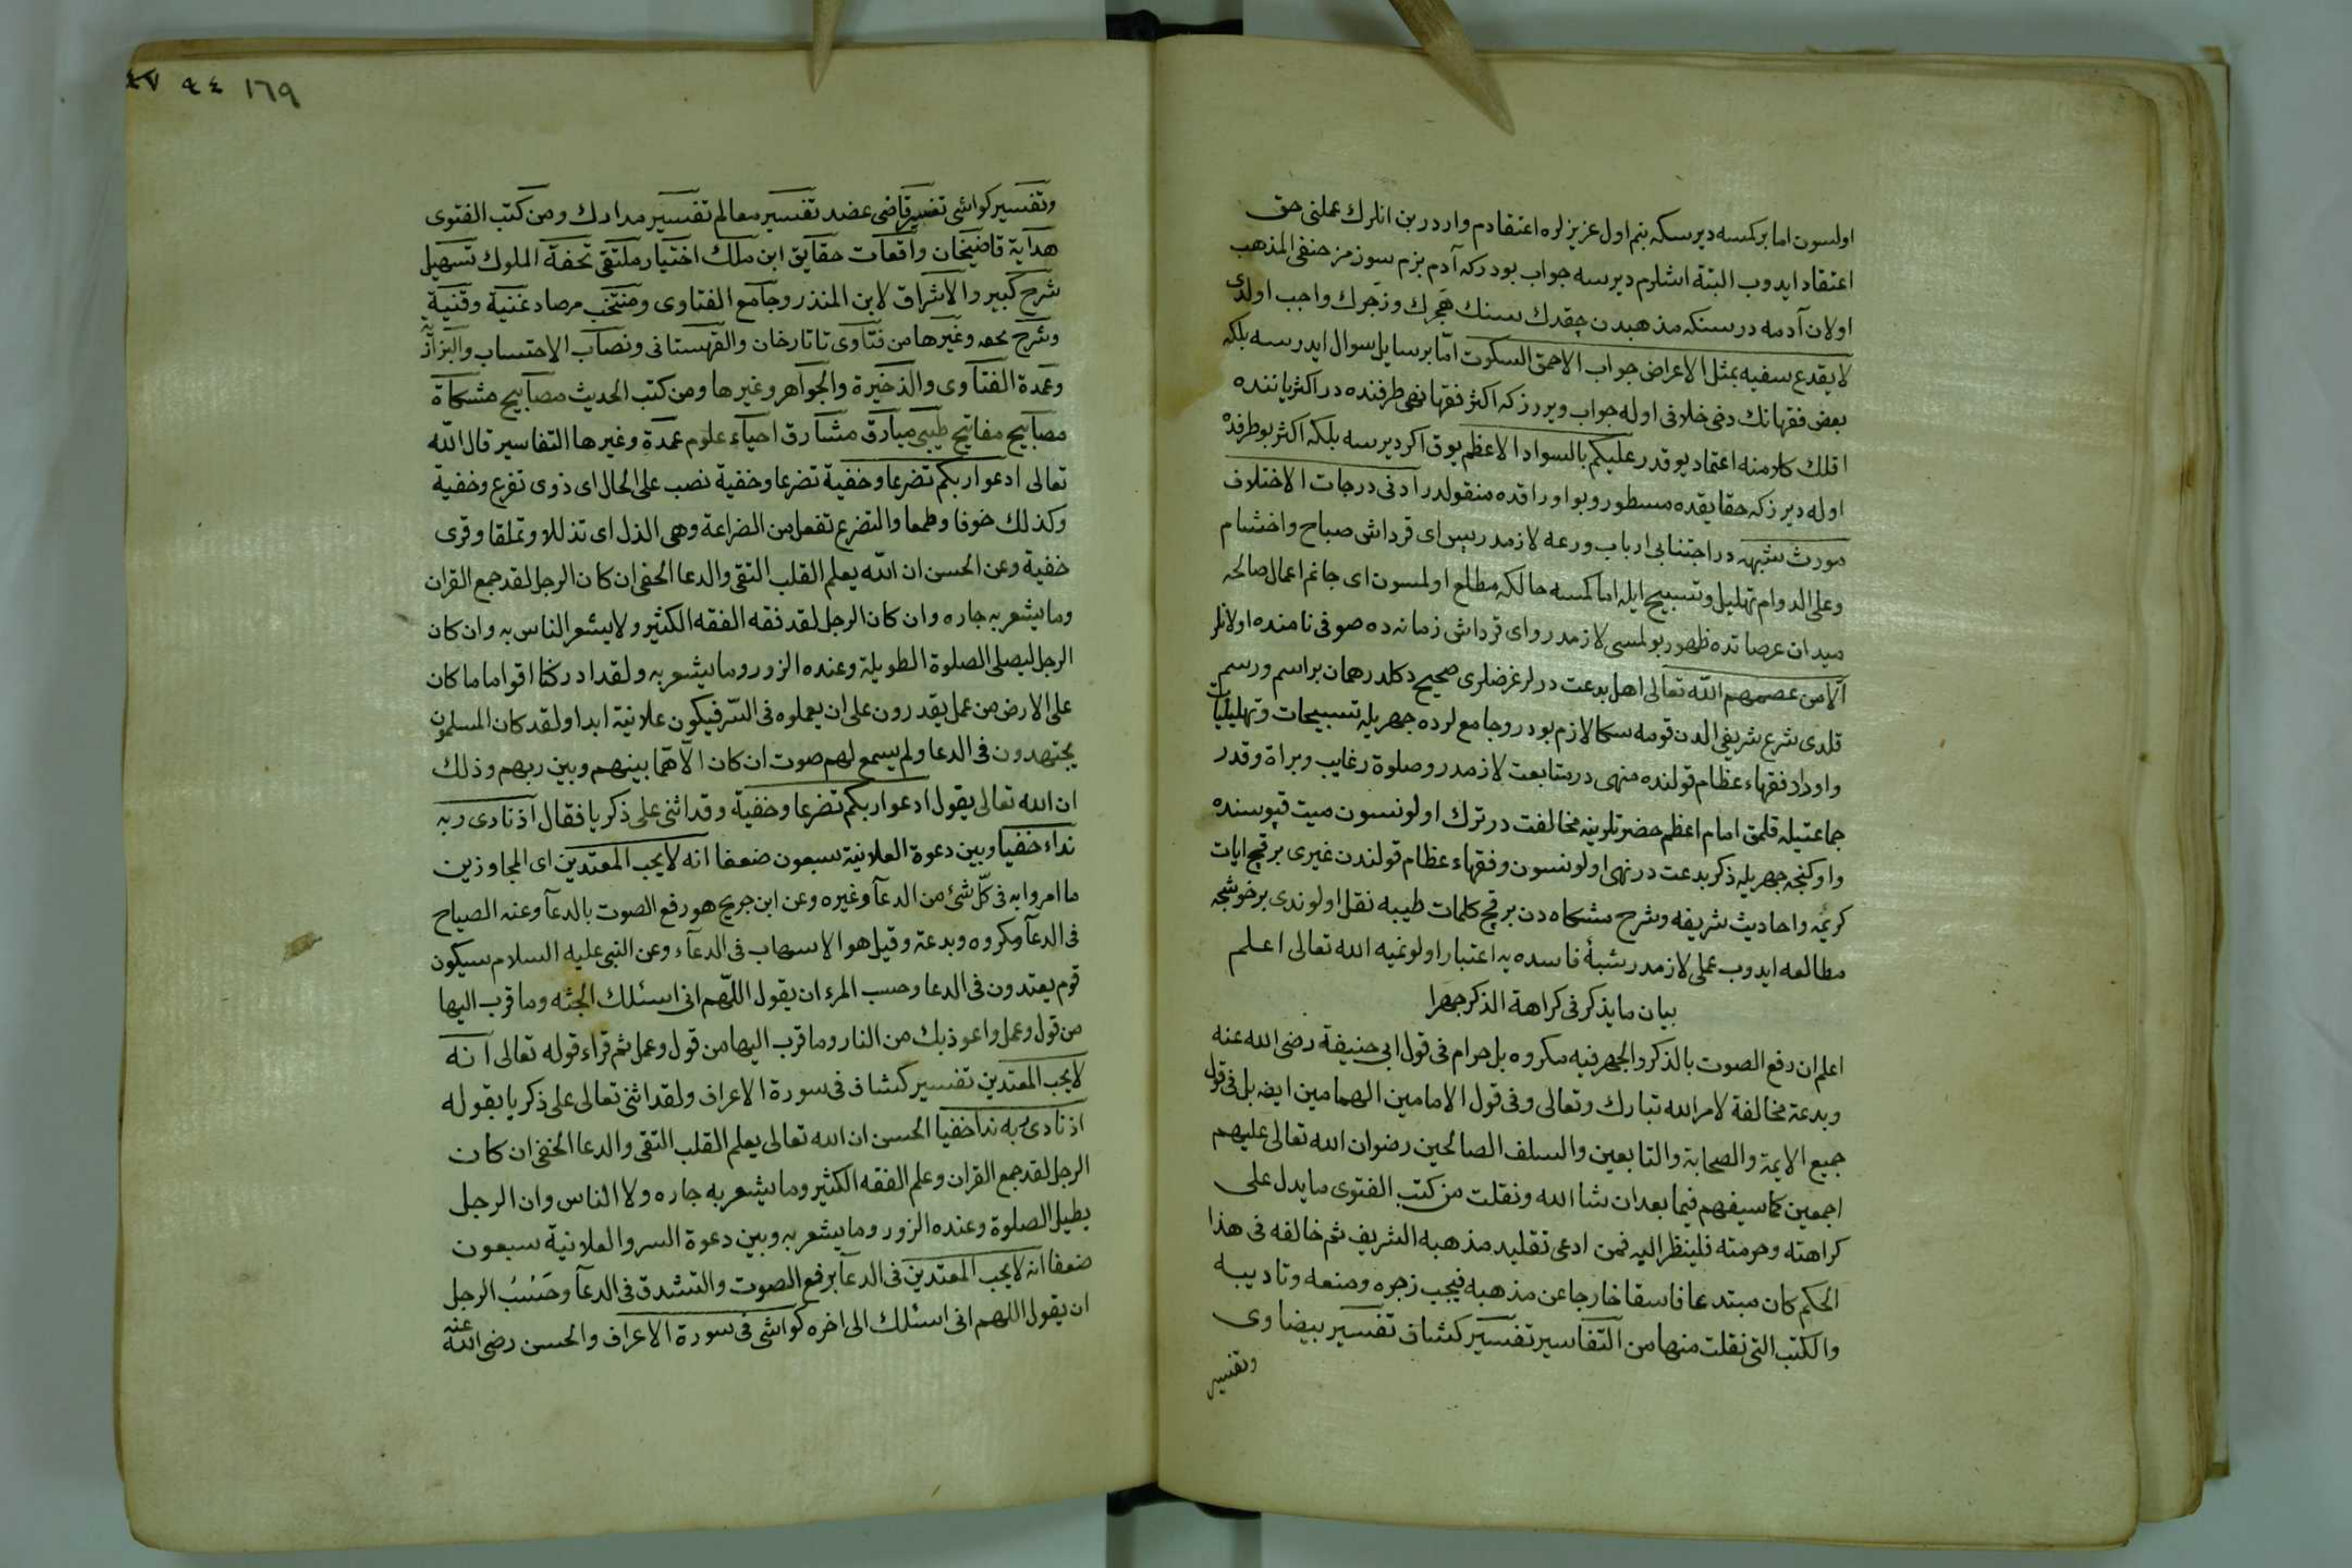 اولسون اما بركمسه ديرسكه بنم اول عزيزلره اعتقادم واردر بن انلرك عملنى حق
اعتقاد ايدوب البتة اشلرم ديرسه جواب بودركه آدم بزم سوزمز حنفى المذهب
اولان آدمه در سنكه مذهبدن چقدك سنك هجرك وزجرك واجب اولدى
لا يقدع سفيه بمثل الاعراض جواب الاحمق السكوت امّا برسايل سوال ايدرسه بلكه
بعض فقهانك دخى خلافى اوله جواب ويررزكه اكثر فقها نهى طرفنده در اكثر ياننده
اقلك كلامنه اعتماد يوقدر عليكم بالسواد الاعظم يوق اكر ديرسه بلكه اكثر بو طرفده
اوله ديرزكه حقايقده مسطور وبو اوراقده منقولدر آدنى درجات الاختلاف
مورث شبهه در اجتنابى ارباب ورعه لازمدر پس اى قرداش صباح واخشام
وعلى الدوام تهليل وتسبيح ايله اما كمسه حالكه مطلع اولمسون اى جانم اعمال صالحه
ميدان عرصاتده ظهور بولمسى لازمدر واى قرداش زمانه ده صوفى نامنده اولانلر
آلا من عصمهم الله تعالى اهل بدعت درلر غرضلرى صحيح دكلدر همان براسم ورسم
قلدى شرع شريفى الدن قومه سكا لازم بودر وجامعلرده جهريله تسبيحات وتهليليات
واوراد فقهاء عظام قولنده منهى در متابعت لازمدر وصلوة رغايب وبراة وقدر
جماعتيله قلمق امام اعظم حضرتلرينه مخالفت در ترك اولونسون ميت قپوسنده
واوكنجه جهريله ذكر بدعت در نهى اولونسون وفقهاء عظام قولندن غيرى برقچ ايات
كريمه واحاديث شريفه وشرح مشكاه دن برقچ كلمات طيبه نقل اولوندى برخوشجه
مطالعه ايدوب عملى لازمدر شبهٔ فاسده يه اعتبار اولونميه الله تعالى اعلم
بيان ما يذكر فى كراهة الذكر جهرا
اعلم ان رفع الصوت بالذكر والجهر فيه مكروه بل حرام فى قول ابى حنيفة رضى الله عنه
وبدعة مخالفة لامر الله تبارك وتعالى وفى قول الامامين الهمامين ايضه بل فى قول
جميع الايمة والصحابة والتابعين والسلف الصالحين رضوان الله تعالى عليهم
اجمعين كما سيفهم فيما بعد ان شا الله ونقلت من كتب الفتوى ما يدل على
كراهته وحرمته فلينظر اليه فمن ادعى تقليد مذهبه الشريف ثم خالفه فى هذا
الحكم كان مبتدعا فاسقا خارجا عن مذهبه فيجب زجره ومنعه وتاديبه
والكتب التى نقلت منها من التفاسير تفسير كشاف تفسير بيضاوى
وتفسير
١٦٩ ٩٤ ٤٧
وتفسير كواشى تفسير قاضى عضد تفسير معالم تفسير مدارك ومن كتب الفتوى
هداية قاضيخان واقعات حقايق ابن ملك اختيار ملتقى تحفة الملوك تسهيل
شرح كبير والاشراق لابن المنذر وجامع الفتاوى ومنتخب مرصاد غنية وقنية
وشرح تحفه وغيرها من فتاوى تاتارخان والقهستانى ونصاب الاحتساب والبزازية
وعمدة الفتاوى والذخيرة والجواهر وغيرها ومن كتب الحديث مصابيح مشكاة
مصابيح مفاتيح طيبى مبارق مشارق احياء علوم عمدة وغيرها التفاسير قال الله
تعالى ادعوا ربكم تضرعا وخفية تضرعا وخفية نصب على الحال اى ذوى تضرع وخفية
وكذلك خوفا وطمعا والتضرع تفعل من الضراعة وهى الذل اى تذللا وتملقا وقرى
خفية وعن الحسن ان الله يعلم القلب التقى والدعا الخفى ان كان الرجل لقد جمع القران
وما يشعر به جاره وان كان الرجل لقد فقه الفقه الكثير ولا يشعر الناس به وان كان
الرجل ليصلى الصلوة الطويلة وعنده الزور وما يشعر به ولقد ادركنا اقواما ما كان
على الارض من عمل يقدرون على ان يعملوه فى السّر فيكون علانية ابدا ولقد كان المسلمون
يجتهدون فى الدعا ولم يسمع لهم صوت ان كان الاّ همّا بينهم وبين ربهم وذلك
ان الله تعالى يقول ادعوا ربكم تضرعا وخفية وقد اثنى على ذكريا فقال اذ نادى ربه
نداء خفيا وبين دعوة العلانية سبعون ضعفا انه لا يحب المعتدين اى المجاوزين
ما امروا به فى كلّ شئ من الدعآ وغيره وعن ابن جريج هو رفع الصوت بالدعآ وعنه الصياح
فى الدعآ مكروه وبدعة وقيل هو الاسهاب فى الدعآء وعن النبى عليه السلام سيكون
قوم يعتدون فى الدعا وحسب المرء ان يقول اللهّم انى اسئلك الجنّه وما قرب اليها
من قول وعمل واعوذ بك من النار وما قرب اليها من قول وعمل ثم قراء قوله تعالى انه
لا يحب المعتدين تفسير كشاف فى سورة الاعراف ولقد اثنى تعالى على ذكريا بقوله
اذ نادى ربه ندا خفيا الحسن ان الله تعالى يعلم القلب التقى والدعا الخفى ان كان
الرجل لقد جمع القران وعلم الفقه الكثير وما يشعر به جاره ولا الناس وان الرجل
يطيل الصلوة وعنده الزور وما يشعر به وبين دعوة السر والعلانية سبعون
ضعفا انه لا يحب المعتدين فى الدعآ برفع الصوت والتشدق فى الدعآ وحَسْبُ الرجل
ان يقول اللهم انى اسئلك الى اخره كواشى فى سورة الاعراف والحسن رضى الله عنه